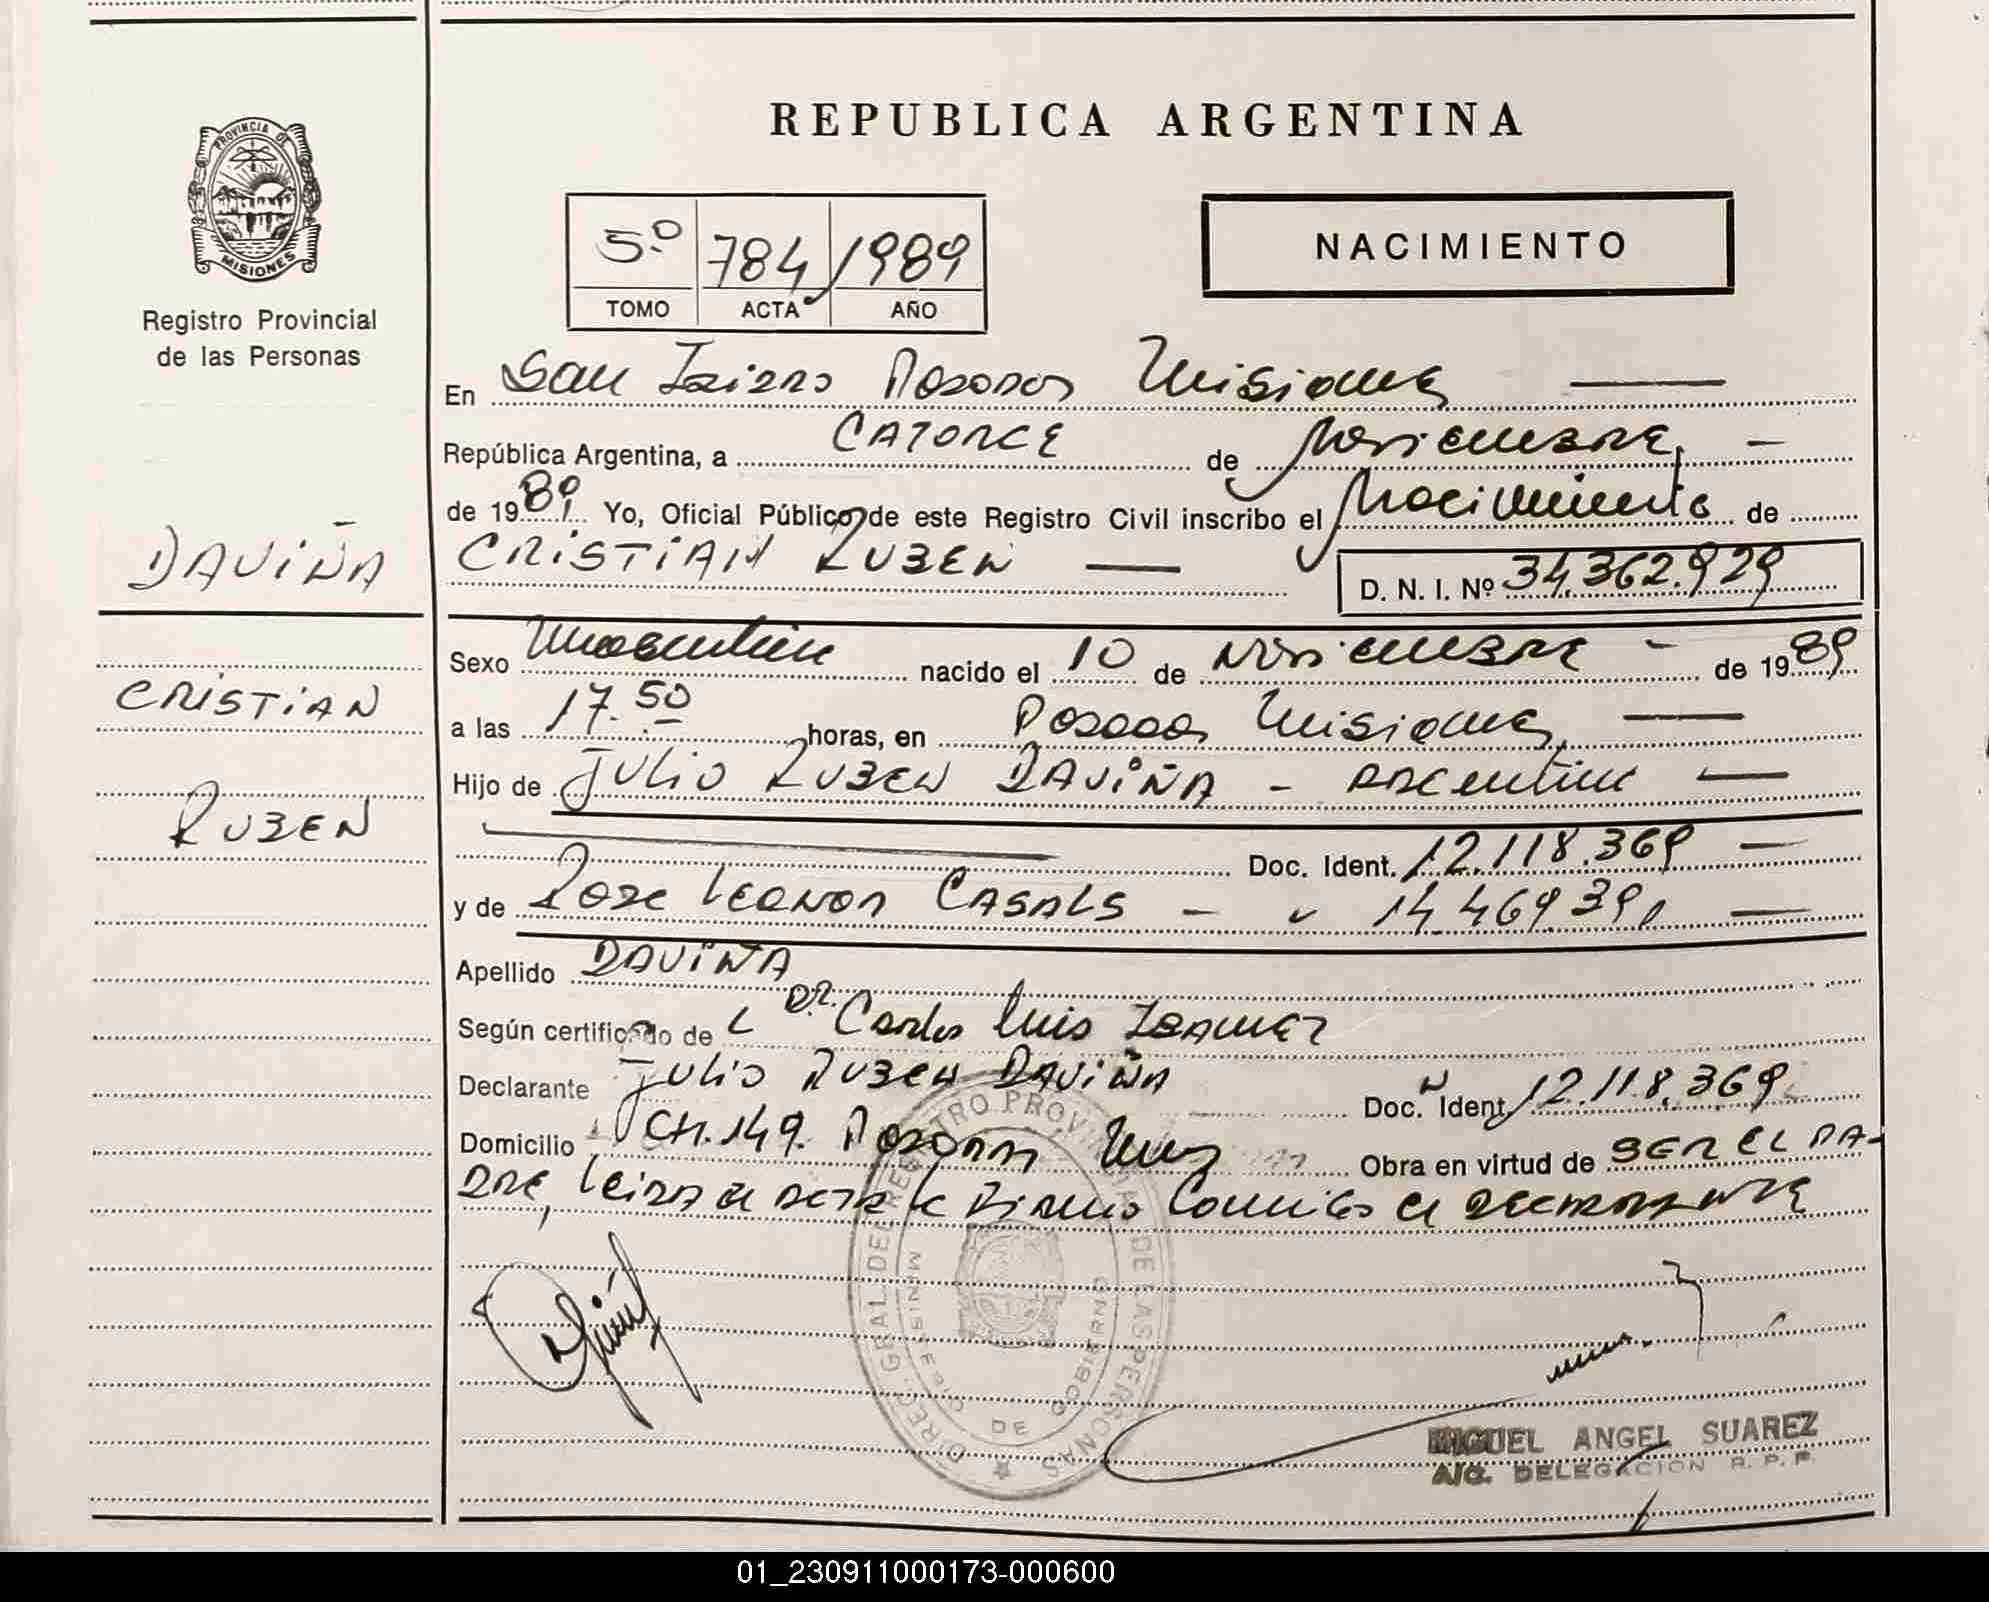 REPUBLICA ARGENTINA
PROVINCIA DE
MISIONES
Registro Provincial
de las Personas
5º 784 1989
TOMO ACTA AÑO
NACIMIENTO
En San Isidro Posadas Misiones
República Argentina, a CATORCE de Noviembre
de 1989 Yo, Oficial Público de este Registro Civil inscribo el Nacimiento de
CRISTIAN RUBEN D. N. I. Nº 34.362.929
DAVIÑA
CRISTIAN
RUBEN
Sexo Masculino nacido el 10 de Noviembre de 1989
a las 17.50 horas, en Posadas Misiones
Hijo de JULIO RUBEN DAVIÑA - Argentino
Doc. Ident. 12.118.369
y de Leonor CASALS - 14.469.391
Apellido DAVIÑA
Según certificado de Dr. Carlos Luis
Declarante JULIO RUBEN DAVIÑA Doc. Ident. 12.118.369
Domicilio CH. 149. Posadas Mnes Obra en virtud de SER EL PA-
DRE, Leida el acta la Firma Conmigo el declarante
DIREC. GRAL. DEL REGISTRO PROVINCIAL DE LAS PERSONAS
MINISTERIO DE GOBIERNO
MIGUEL ANGEL SUAREZ
A/C. DELEGACION R. P. P.
01_230911000173-000600